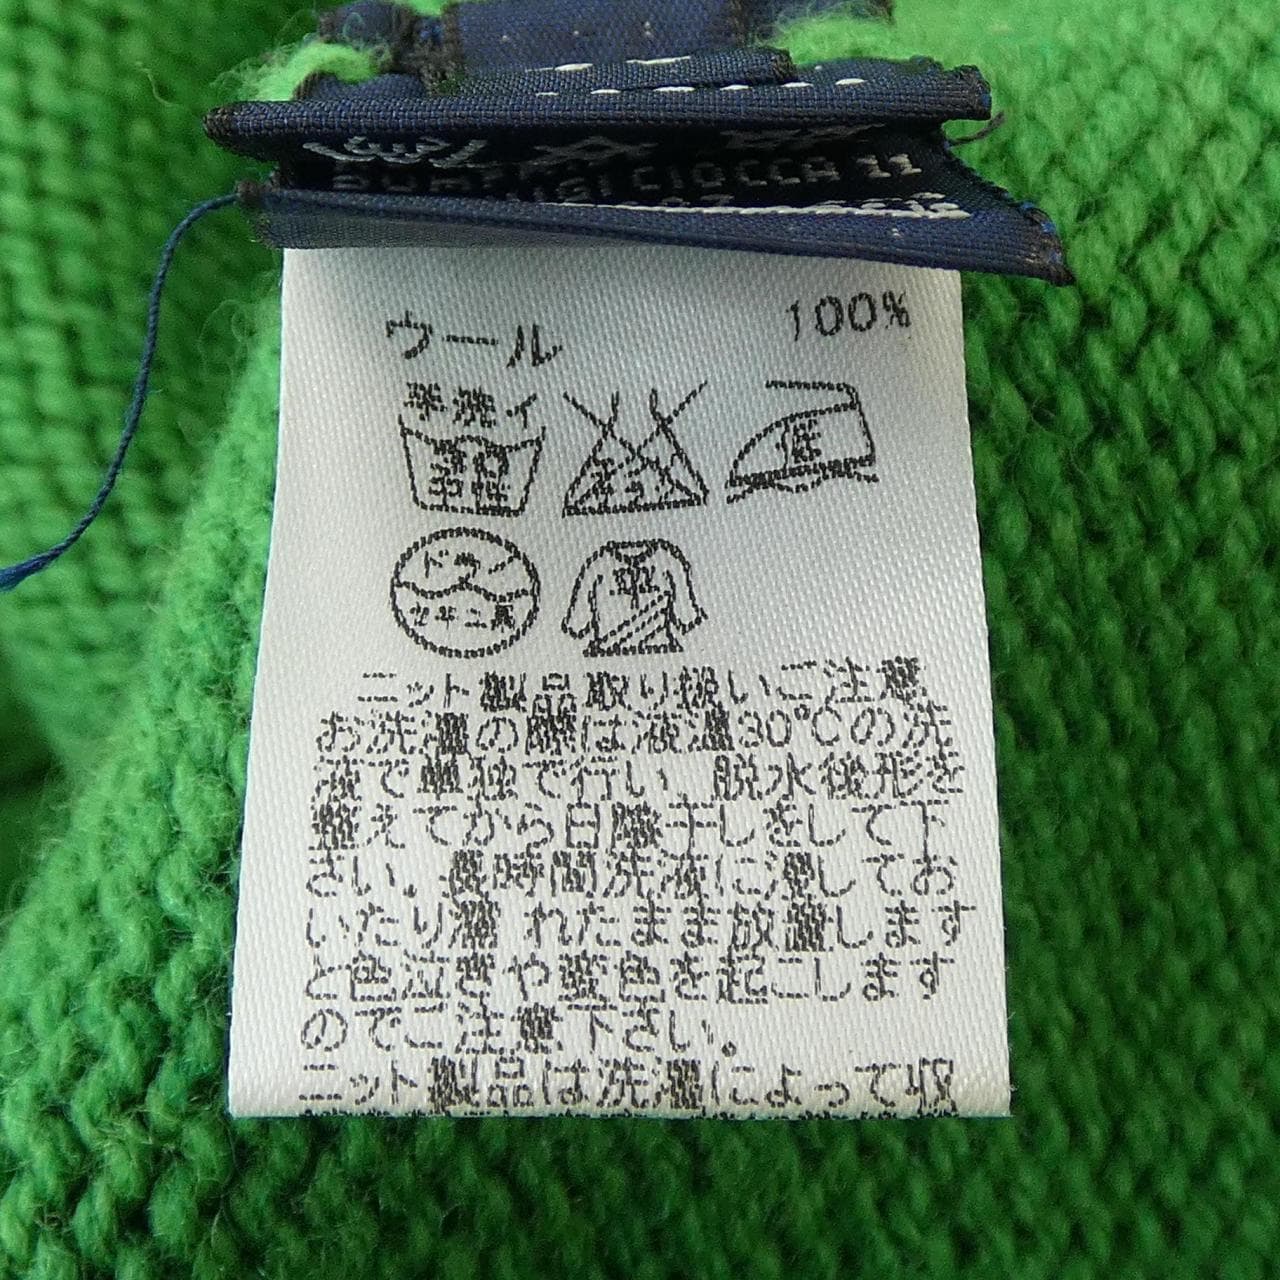 CIOCCA 11
ウール 100%
手洗イ
30
中性
エンソサラシ
低
ドライ
セキユ系
平
ニット製品取り扱いご注意
お洗濯の際は液温30℃の洗
液で単独で行い、脱水後形を
整えてから日陰干しをして下
さい。長時間洗液に浸してお
いたり濡れたまま放置します
と色泣きや変色を起こします
のでご注意下さい。
ニット製品は洗濯によって収